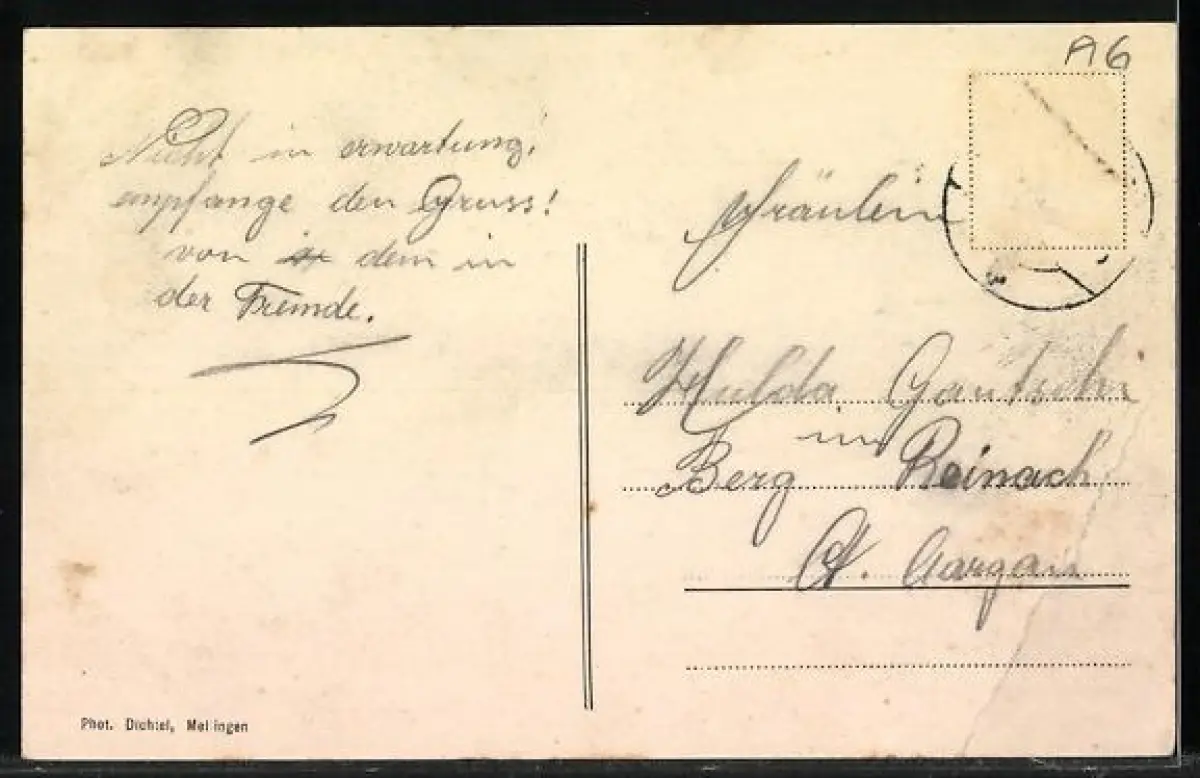 A6
Nicht in erwartung,
empfange den Gruss!
von dem in
der Fremde.
Fräulein
Hulda Gautschi
im
Berg Reinach
Ct. Aargau
Phot. Dichtel, Mellingen